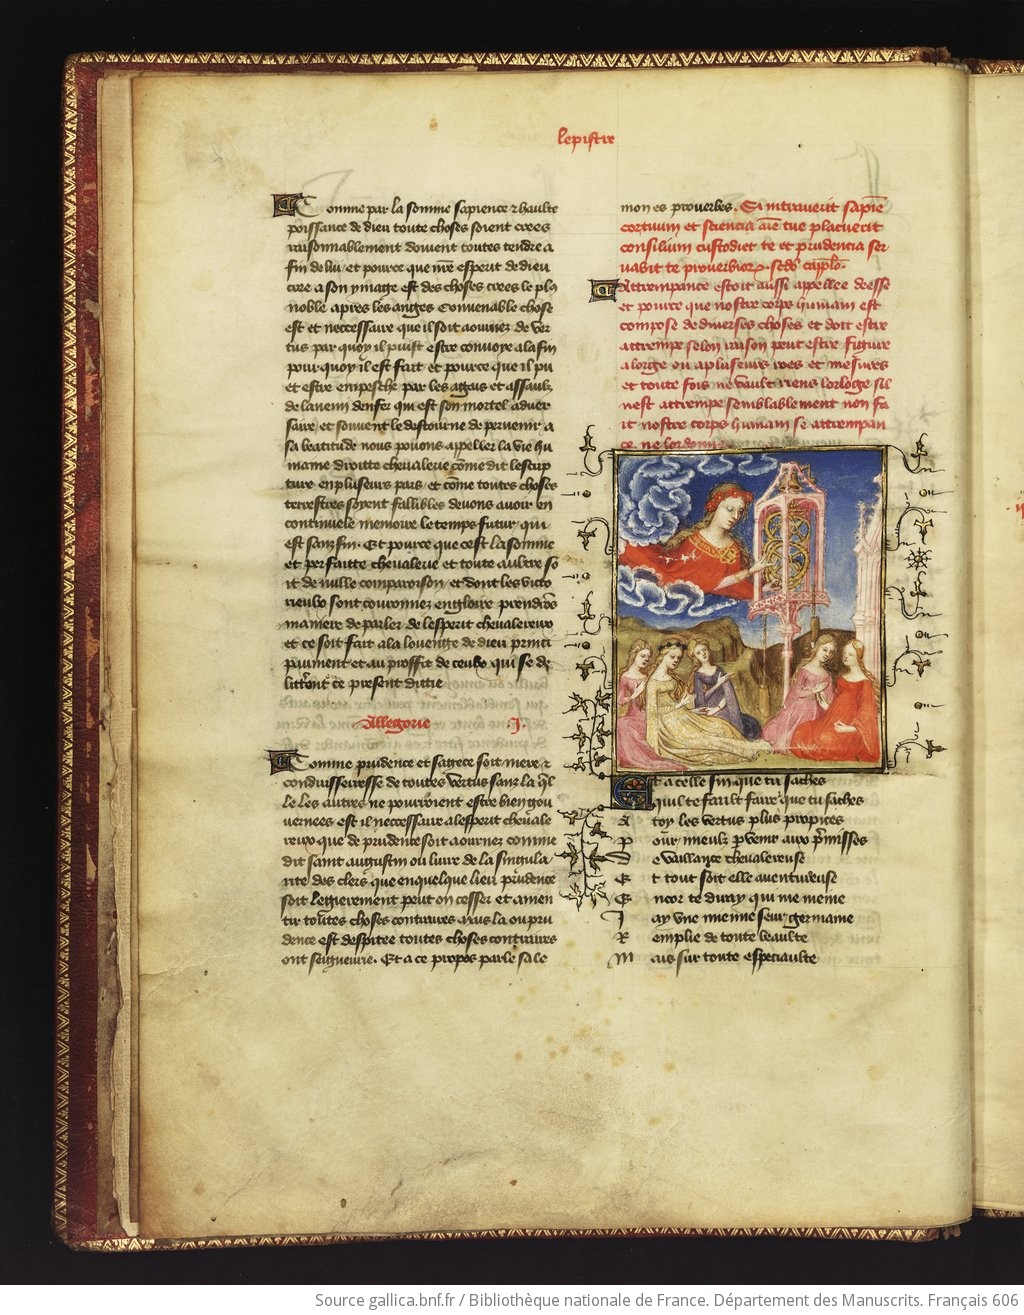 lepistre
Comme par la somme sapience & haulte
poissance de dieu toute choses soient crees
raisonnablement doivent toutes tendre a
fin de lui et pource que nre esperit de dieu
cree a son ymage est des choses crees le plus
noble apres les anges Convenable chose
est et neccessaire que il soit aournez de ver
tus par quoy il puist estre convoye a la fin
pour quoy il est fait et pource que il pu
et estre empesche par les agais et assaulz
de lanemi denfer qui est son mortel adver
saire et souvent le destourne de pervenir a
sa beatitude nous povons appeller la vie hu
maine droitte chevalerie come dit lescrip
ture en pluseurs pars et come toutes choses
terrestres soyent faillibles devons avoir en
continuele memoire le temps futur qui
est sanz fin. Et pource que cest la somme
et perfaitte chevalerie et toute aultre so
it de nulle comparoison et dont les victo
rieux sont couronnez en gloire prendros
maniere de parler de lesperit chevalereux
et ce soit fait a la louenge de dieu princi
paument et au proffit de ceulx qui se de
litteront ce present dittie
Allegorie J.
Comme prudence et sagece soit mere &
conduisserresse de toutes vertus sanz la ql
le les autres ne pourroient estre bien gou
vernees est il neccessaire a lesperit chevale
reux que de prudence soit aournez comme
dit saint augustin ou livre de la singula
rite des clers que en quelque lieu prudence
soit legierement peut on cesser et anien
tir toutes choses contraires mais la ou pru
dence est despitee toutes choses contraires
ont seigneurie. Et a ce propos parle sale
mon es prouerbes. Si intraverit sapie
cortuum et sciencia aie tue placuerit
consilium custodiet te et prudencia ser
vabit te prouerbiorz. scdo caplo.
Attrempance estoit aussi appellee deesse
et pource que nostre corps humain est
compose de diverses choses et doit estre
attrempe selon raison peut estre figure
a lorge ou a pluseurs roes et mesures
et toute fois ne vault riens lorloge sil
nest attrempe semblablement non fa
it nostre corps humain se attrempan
ce ne lordonne
Et a celle fin que tu saches
Quil te fault faire que tu saches
A toy les vertus plus propices
Pour mieulz pvenir aux pmisses
De vaillance chevalereuse
Et tout soit elle aventureuse
Encor te diray qui me meine
Jay une mienne seur germaine
Remplie de toute beaulte
Mais sur toute especiaulte
Source gallica.bnf.fr / Bibliothèque nationale de France. Département des Manuscrits. Français 606